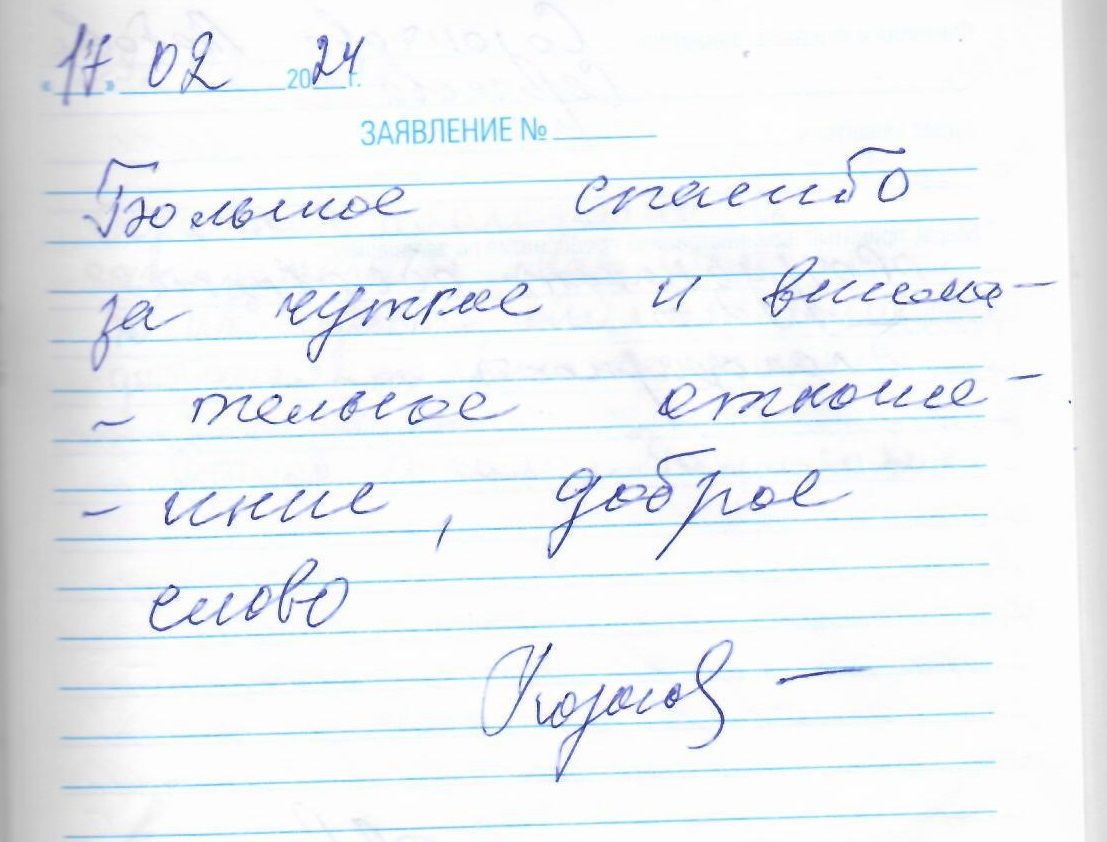 «17» 02 2024 г.
ЗАЯВЛЕНИЕ №
Большое спасибо
за чуткое и внима-
- тельное отноше-
- ние, доброе
слово